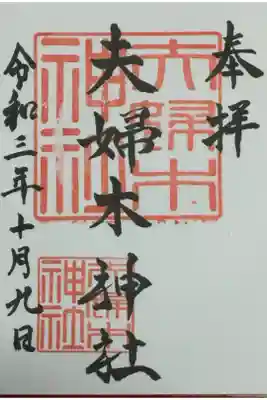 奉拝
夫婦木神社
令和三年十月九日
夫婦木神社
神社